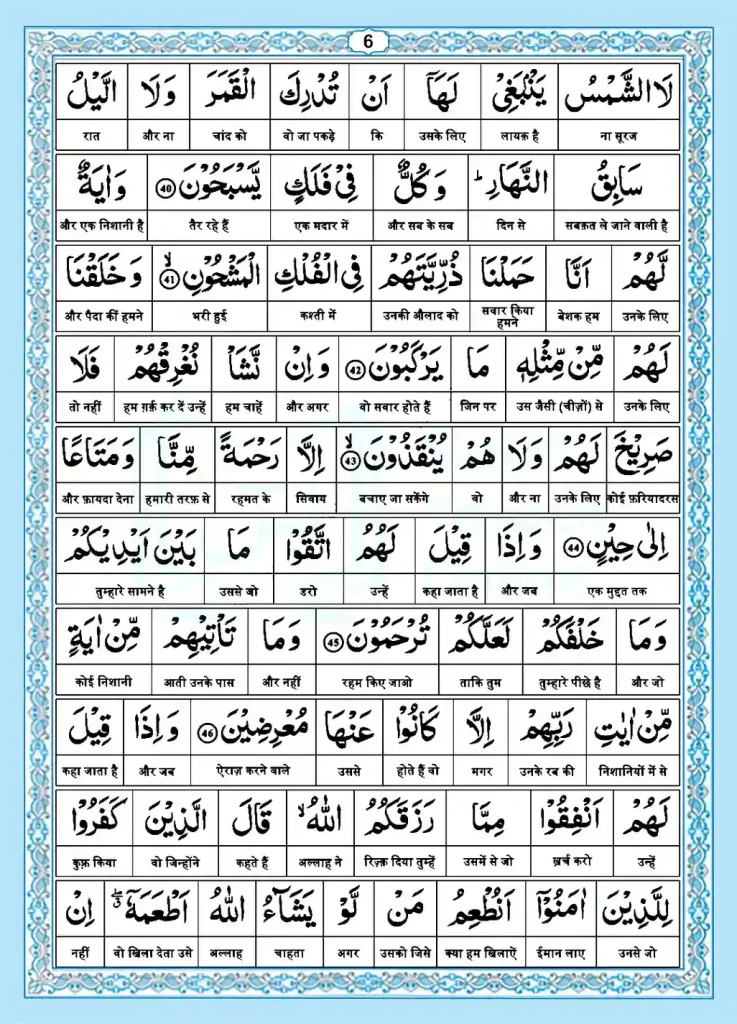 6
لَا الشَّمْسُ يَنْۢبَغِيْ لَهَاۤ اَنْ تُدْرِكَ الْقَمَرَ وَلَا الَّيْلُ
ना सूरज लायक़ है उसके लिए कि वो जा पकड़े चांद को और ना रात
سَابِقُ النَّهَارِ ؕ وَكُلٌّ فِيْ فَلَكٍ يَّسْبَحُوْنَ 40 وَاٰيَةٌ
सबक़त ले जाने वाली है दिन से और सब के सब एक मदार में तैर रहे हैं और एक निशानी है
لَّهُمْ اَنَّا حَمَلْنَا ذُرِّيَّتَهُمْ فِي الْفُلْكِ الْمَشْحُوْنِ ۙ 41 وَخَلَقْنَا
उनके लिए बेशक हम सवार किया हमने उनकी औलाद को कश्ती में भरी हुई और पैदा कीं हमने
لَهُمْ مِّنْ مِّثْلِهٖ مَا يَرْكَبُوْنَ 42 وَاِنْ نَّشَاْ نُغْرِقْهُمْ فَلَا
उनके लिए उस जैसी (चीज़ों) से जिन पर वो सवार होते हैं और अगर हम चाहें हम ग़र्क़ कर दें उन्हें तो नहीं
صَرِيْخَ لَهُمْ وَلَا هُمْ يُنْقَذُوْنَ ۙ 43 اِلَّا رَحْمَةً مِّنَّا وَمَتَاعًا
कोई फ़रियादरस उनके लिए और ना वो बचाए जा सकेंगे सिवाय रहमत के हमारी तरफ़ से और फ़ायदा देना
اِلٰى حِيْنٍ 44 وَاِذَا قِيْلَ لَهُمُ اتَّقُوْا مَا بَيْنَ اَيْدِيْكُمْ
एक मुद्दत तक और जब कहा जाता है उन्हें डरो उससे जो तुम्हारे सामने है
وَمَا خَلْفَكُمْ لَعَلَّكُمْ تُرْحَمُوْنَ 45 وَمَا تَاْتِيْهِمْ مِّنْ اٰيَةٍ
और जो तुम्हारे पीछे है ताकि तुम रहम किए जाओ और नहीं आती उनके पास कोई निशानी
مِّنْ اٰيٰتِ رَبِّهِمْ اِلَّا كَانُوْا عَنْهَا مُعْرِضِيْنَ 46 وَاِذَا قِيْلَ
निशानियों में से उनके रब की मगर होते हैं वो उससे ऐराज़ करने वाले और जब कहा जाता है
لَهُمْ اَنْفِقُوْا مِمَّا رَزَقَكُمُ اللّٰهُ ۙ قَالَ الَّذِيْنَ كَفَرُوْا
उन्हें ख़र्च करो उसमें से जो रिज़्क़ दिया तुम्हें अल्लाह ने कहते हैं वो जिन्होंने कुफ़्र किया
لِلَّذِيْنَ اٰمَنُوْۤا اَنُطْعِمُ مَنْ لَّوْ يَشَآءُ اللّٰهُ اَطْعَمَهٗۤ ۖ اِنْ
उनसे जो ईमान लाए क्या हम खिलाऐं उसको जिसे अगर चाहता अल्लाह वो खिला देता उसे नहीं